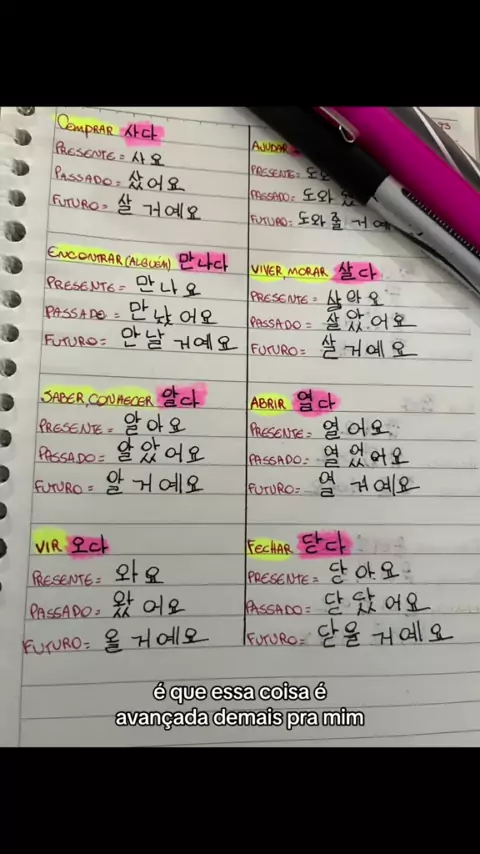 COMPRAR 사다
PRESENTE = 사요
PASSADO = 샀어요
FUTURO = 살 거예요
ENCONTRAR (ALGUÉM) 만나다
PRESENTE = 만나요
PASSADO = 만났어요
FUTURO = 만날 거예요
SABER, CONHECER 알다
PRESENTE = 알아요
PASSADO = 알았어요
FUTURO = 알 거예요
VIR 오다
PRESENTE = 와요
PASSADO = 왔어요
FUTURO = 올 거예요
73
AJUDAR
PRESENTE =
PASSADO = 도와
FUTURO = 도와줄 거예
VIVER, MORAR 살다
PRESENTE = 살아요
PASSADO = 살았어요
FUTURO = 살 거예요
ABRIR 열다
PRESENTE = 열어요
PASSADO = 열었어요
FUTURO = 열 거예요
FECHAR 닫다
PRESENTE = 닫아요
PASSADO = 닫닸어요
FUTURO = 닫을 거예요
é que essa coisa é
avançada demais pra mim